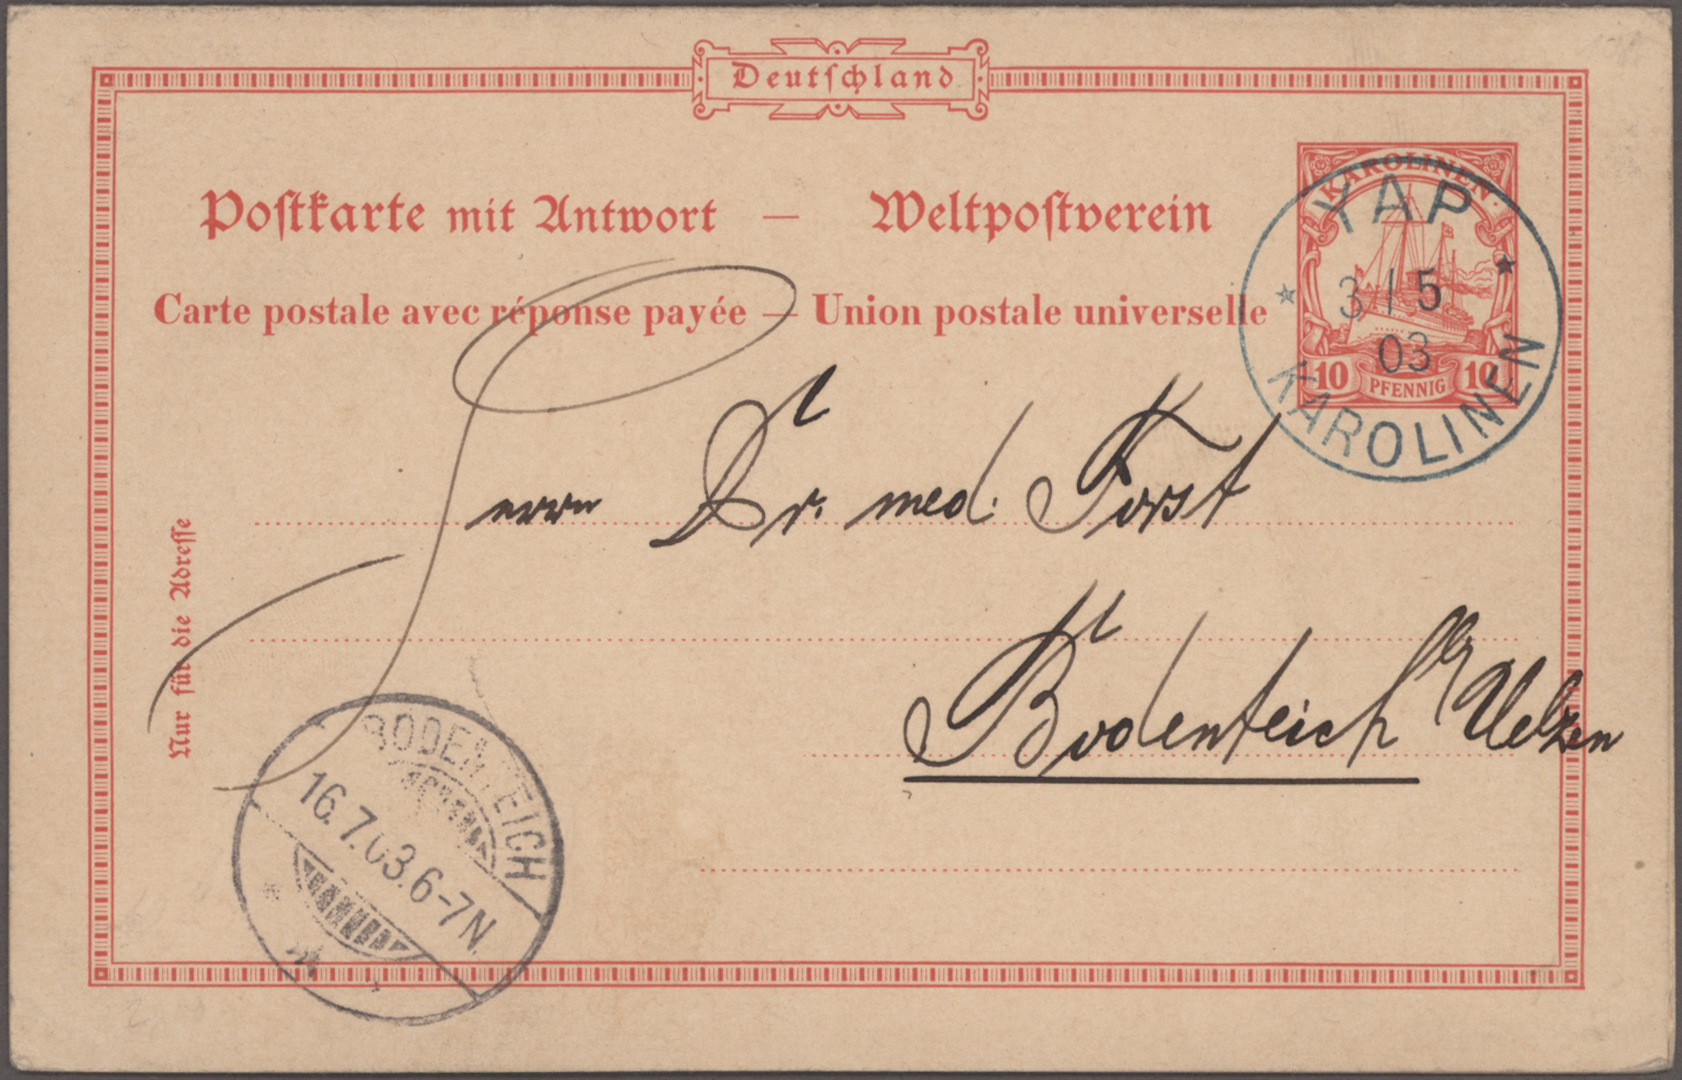 Deutschland
Postkarte mit Antwort — Weltpostverein
Carte postale avec réponse payée — Union postale universelle
KAROLINEN
10 PFENNIG 10
YAP
3/5
03
KAROLINEN
Herrn Dr. med. Forst
Bodenteich b/ Uelzen
Nur für die Adresse
BODENTEICH
16.7.03.6-7N.